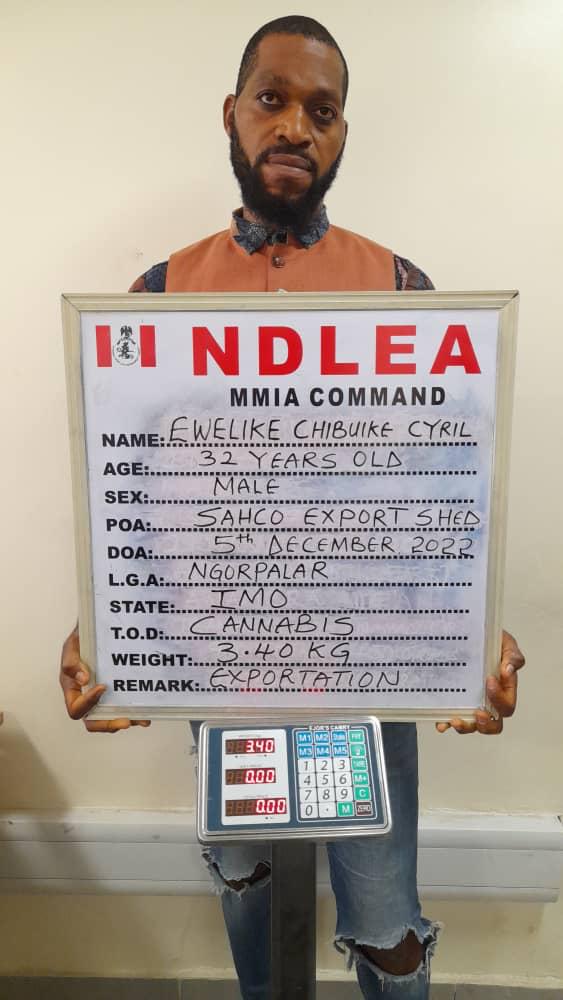 NDLEA
MMIA COMMAND
NAME: EWELIKE CHIBUIKE CYRIL
AGE: 32 YEARS OLD
SEX: MALE
POA: SAHCO EXPORT SHED
DOA: 5th DECEMBER 2022
L.G.A: NGORPALAR
STATE: IMO
T.O.D: CANNABIS
WEIGHT: 3.40 KG
REMARK: EXPORTATION
CAMRY
3.40
0.00
0.00
M1 M2 PAY
M3 M4 M5
1 2 3 TARE
4 5 6 M+
7 8 9 C
0 . M ZERO